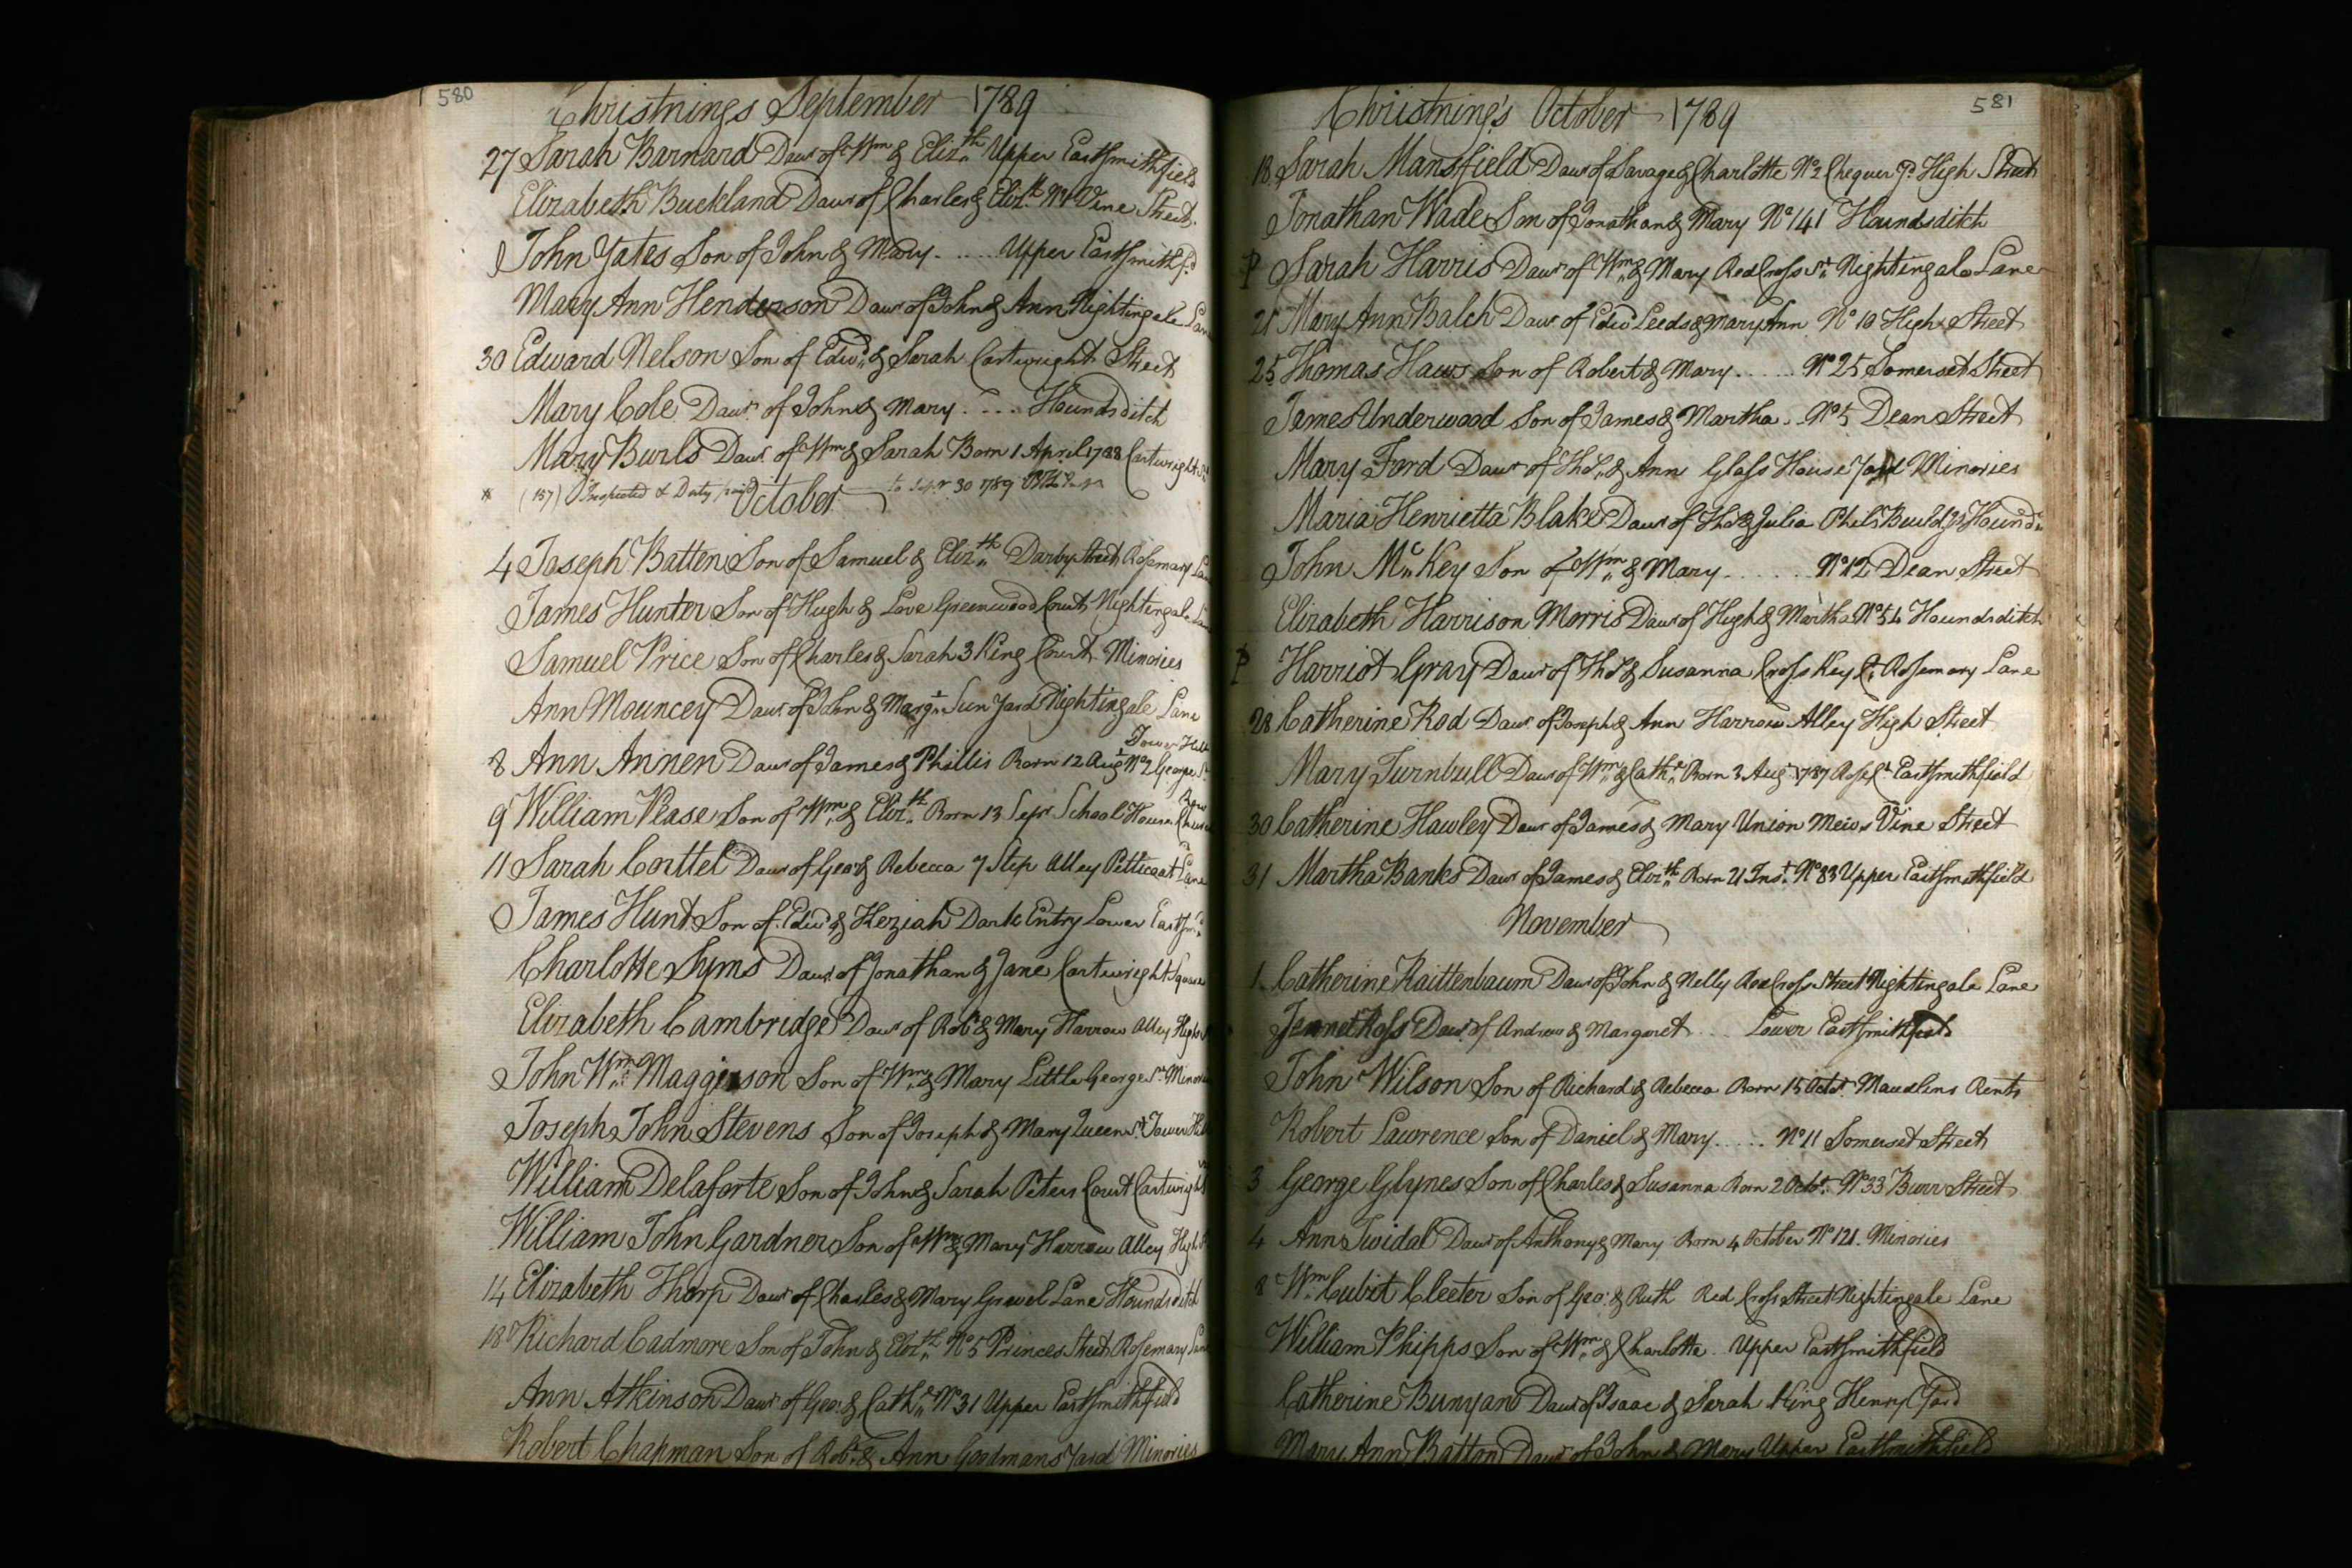 580
Christnings September 1789
27 Sarah Barnard Daur of Wm & Elizth Upper Eastsmithfield
Elizabeth Buckland Daur of Charles & Elizth No 1 Vine Street
John Yates Son of John & Mary..... Upper Eastsmithfd
Mary Ann Henderson Daur of John & Ann Nightingale Lane
30 Edward Nelson Son of Edwd & Sarah Cartwright Street
Mary Cole Daur of John & Mary.... Houndsditch
Mary Burls Daur of Wm & Sarah Born 1 April 1788 Cartwright St
(157) Inspected & Duty paid to Sepr 30 1789
October
4 Joseph Batten Son of Samuel & Elizth Darby Street Rosemary Lane
James Hunter Son of Hugh & Love Greenwood Court Nightingale Lane
Samuel Price Son of Charles & Sarah 3 King Court Minories
Ann Mouncey Daur of John & Margt Sun Yard Nightingale Lane
8 Ann Annen Daur of James & Phillis Born 12 Augt No 2 George St Tower Hill
9 William Pease Son of Wm & Elizth Born 13 Sepr School House
11 Sarah Cottel Daur of Geo: & Rebecca 7 Step Alley Petticoat Lane
James Hunt Son of Edwd & Keziah Dark Entry Lower Eastsmd
Charlotte Syms Daur of Jonathan & Jane Cartwright Square
Elizabeth Cambridge Daur of Robt & Mary Harrow Alley High St
John Wm Maggerson Son of Wm & Mary Little George St Minories
Joseph John Stevens Son of Joseph & Mary Queen St Tower Hill
William Delaforte Son of John & Sarah Peters Court Cartwright
William John Gardner Son of Wm & Mary Harrow Alley High St
14 Elizabeth Thorp Daur of Charles & Mary Gravel Lane Houndsditch
18 Richard Cadmore Son of John & Elizth No 5 Princes Street Rosemary Lane
Ann Atkinson Daur of Geo: & Cathe No 31 Upper Eastsmithfield
Robert Chapman Son of Robt & Ann Goodmans Yard Minories
581
Christning's October 1789
18 Sarah Mansfield Daur of Savage & Charlotte No 2 Chequer Yd High Street
Jonathan Wade Son of Jonathan & Mary No 141 Houndsditch
P Sarah Harris Daur of Wm & Mary Red Cross St Nightingale Lane
21 Mary Ann Balch Daur of Edwd Leeds & Mary Ann No 10 High Street
25 Thomas Haws Son of Robert & Mary..... No 25 Somerset Street
James Underwood Son of James & Martha... No 5 Dean Street
Mary Ford Daur of Thos & Ann Glass House Yard Minories
Maria Henrietta Blake Daur of Thos & Julia Phils Buildgs Houndsh
John McKey Son of Wm & Mary...... No 12 Dean Street
Elizabeth Harrison Morris Daur of Hugh & Martha No 54 Houndsditch
P Harriot Gray Daur of Thos & Susanna Cross Key Ct Rosemary Lane
28 Catherine Rod Daur of Joseph & Ann Harrow Alley High Street
Mary Turnbull Daur of Wm & Cathe Born 3 Augt 1787 Eastsmithfield
30 Catherine Hawley Daur of James & Mary Union Mews Vine Street
31 Martha Banks Daur of James & Elizth Born 21 Inst No 83 Upper Eastsmithfield
November
1 Catherine Raittenbaum Daur of John & Nelly Red Cross Street Nightingale Lane
Jennet Ross Daur of Andrew & Margaret... Lower Eastsmithfield
John Wilson Son of Richard & Rebecca Born 15 Octor Maudlins Rents
Robert Lawrence Son of Daniel & Mary..... No 11 Somerset Street
3 George Glynes Son of Charles & Susanna Born 2 Octor No 33 Burr Street
4 Ann Twidal Daur of Anthony & Mary Born 4 October No 121. Minories
8 Wm Cubit Cleeter Son of Geo: & Ruth Red Cross Street Nightingale Lane
William Phipps Son of Wm & Charlotte. Upper Eastsmithfield
Catherine Bunyan Daur of Isaac & Sarah King Henry Yard
Mary Ann Batton Daur of John & Mary Upper Eastsmithfield